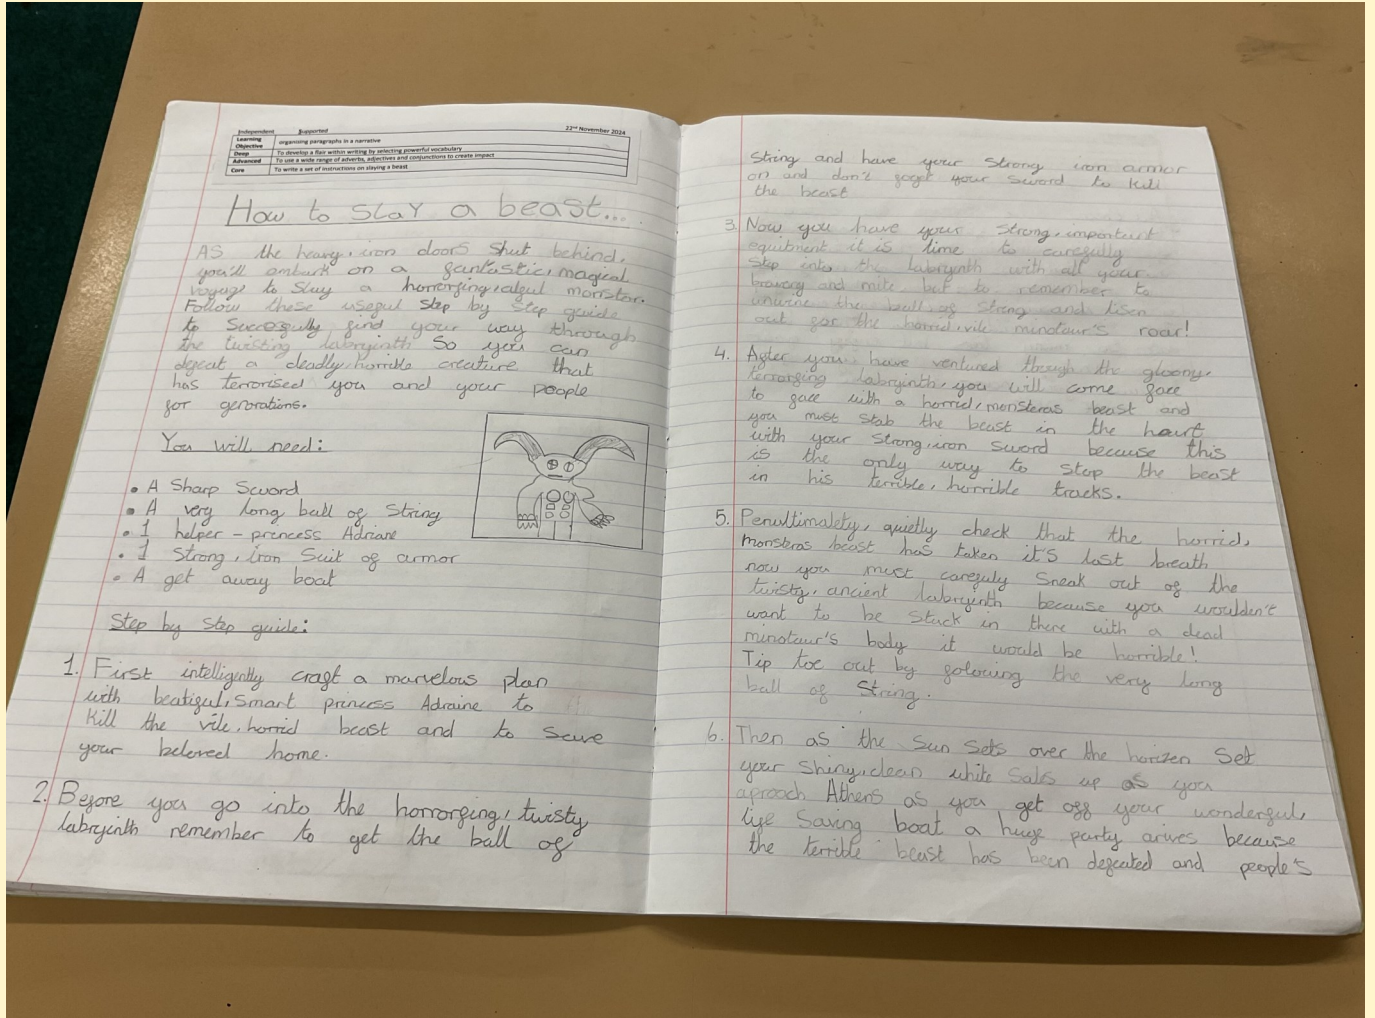 Independent Supported 22nd November 2024
Learning Objective organising paragraphs in a narrative
Deep To develop a flair within writing by selecting powerful vocabulary
Advanced To use a wide range of adverbs, adjectives and conjunctions to create impact
Core To write a set of instructions on slaying a beast
How to slay a beast...
As the heavy, iron doors shut behind,
you'll embark on a fantastic, magical
voyage to slay a horrorfing, monster.
Follow these useful step by step guide
to succesfully find your way through
the twisting labryinth so you can
defeat a deadly, horrible creature that
has terrorised you and your people
for gerorations.
You will need:
• A Sharp Sword
• A very long ball of String
• 1 helper - princess Adriane
• 1 Strong, iron Suit of armor
• A get away boat
Step by Step guide:
1. First intelligently craft a marvelous plan
with beatiful, Smart princess Adraine to
kill the vile, horrid beast and to save
your beloved home.
2. Before you go into the horrorfing, twisty
labryinth remember to get the ball of
String and have your Strong iron armor
on and don't foget your Sword to kill
the beast
3. Now you have your Strong, important
equibtment it is time to carefully
Step into the labrynth with all your
bravery and mite but to remember to
unwine the ball of String and lisen
out for the horrid, vile minotaur's roar!
4. After you have ventured through the gloomy,
terrorfing labryinth, you will come face
to face with a horrid, monsteras beast and
you must stab the beast in the heart
with your strong, iron sword because this
is the only way to stop the beast
in his terrible, horrible tracks.
5. Penultimalety, quietly check that the horrid,
monsteras beast has taken it's last breath
now you must carefuly Sneak out of the
twisty, ancient labryinth because you wouldn't
want to be Stuck in there with a dead
minotaur's body it would be horrible!
Tip toe out by folowing the very long
ball of String.
6. Then as the Sun Sets over the horizen Set
your Shiny, clean white Sales up as you
aproach Athens as you get off your wonderful,
life Saving boat a huge party arives because
the terrible beast has been defeated and people's